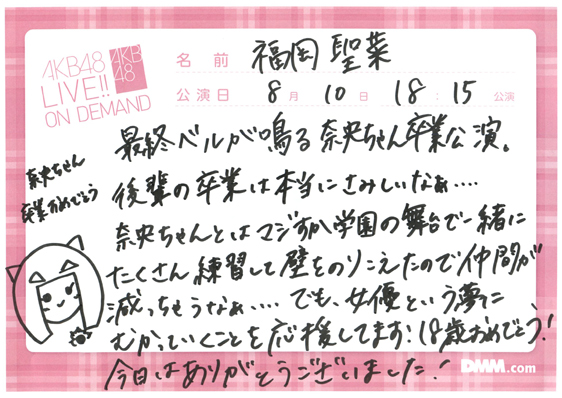 AKB48
LIVE!!
ON DEMAND
AKB
48
名前 福岡聖菜
公演日 8月10日 18:15公演
最終ベルが鳴る奈央ちゃん卒業公演。
奈央ちゃん
卒業おめでとう
後輩の卒業は本当にさみしいなぁ....
奈央ちゃんとはマジすか学園の舞台で一緒に
たくさん練習して壁をのりこえたので仲間が
減っちゃうなぁ.... でも、女優という夢に
むかっていくことを応援してます!18歳おめでとう!
今日はありがとうございました!
DMM.com